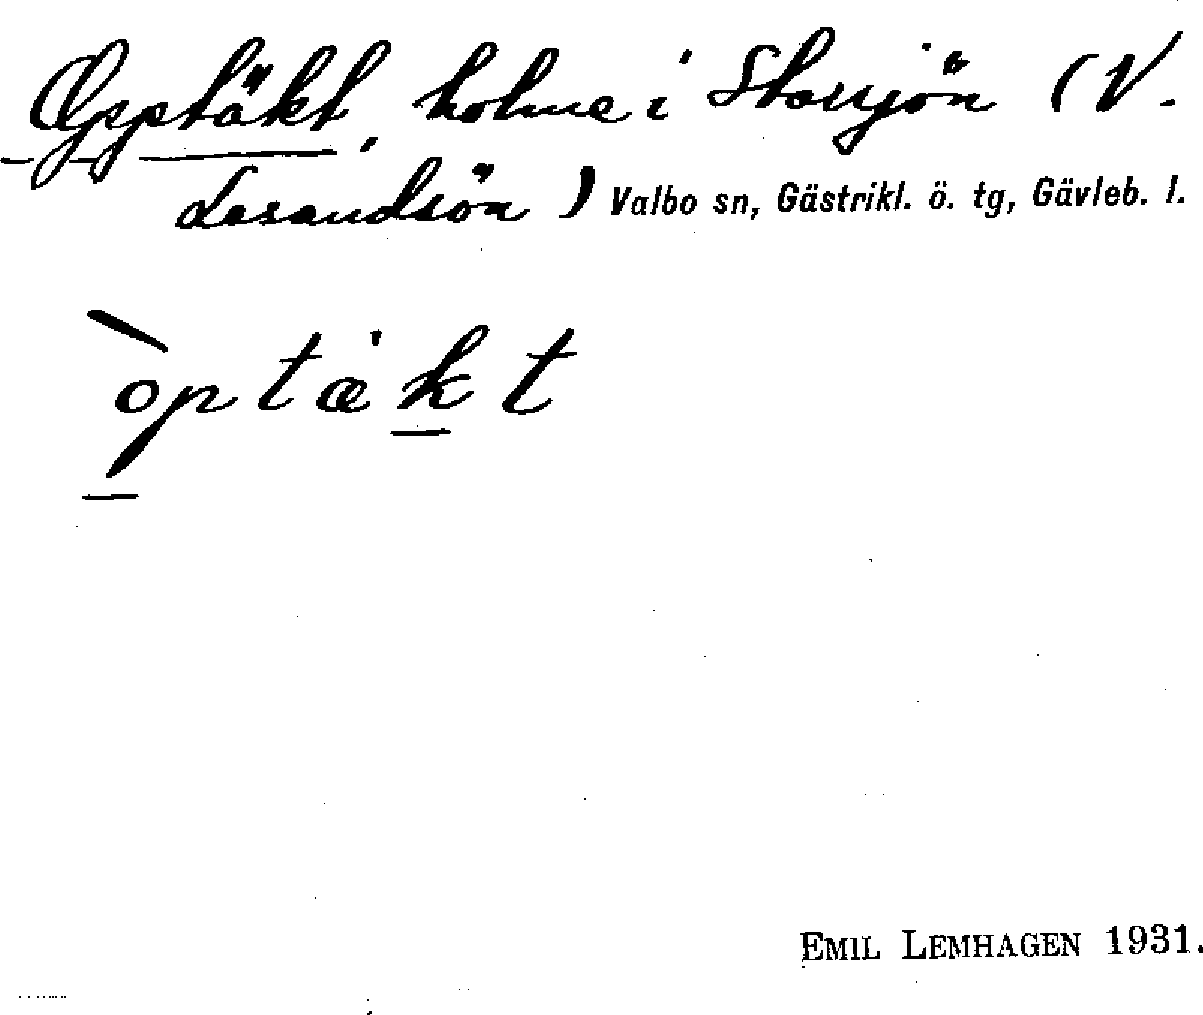 Opptäkt, holme i Storsjön (V.
Lasandsön) Valbo sn, Gästrikl. ö. tg, Gävleb. l.
òptækt
EMIL LEMHAGEN 1931.